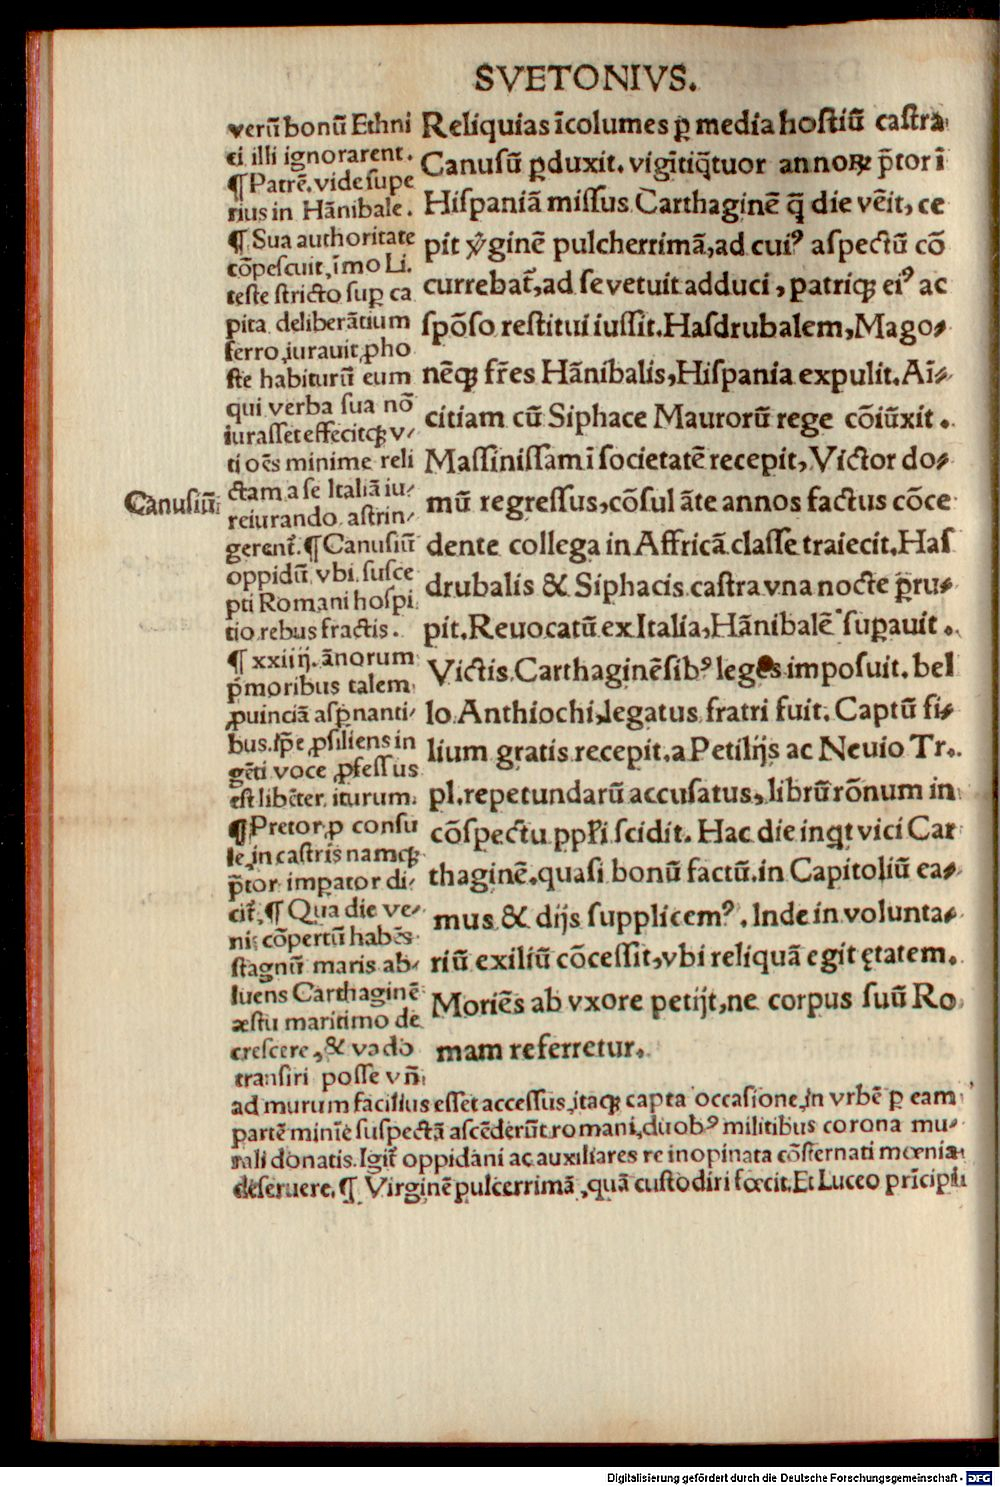 SVETONIVS.
Reliquias īcolumes ꝑ media hostiū castra
Canusū ꝑduxit. vigītiq̄tuor annoꝝ p̄tor ī
Hispaniā missus Carthaginē q̄ die vēit, ce
pit v̆ginē pulcherrimā, ad cuiꝰ aspectū cō
currebat᷑, ad se vetuit adduci, patriqꝫ eiꝰ ac
spōso restitui iussit. Hasdrubalem, Mago⸗
nēqꝫ fr̄es Hānibalis, Hispania expulit. Aī⸗
citiam cū Siphace Maurorū rege cōiūxit.
Massinissam ī societatē recepit, Victor do⸗
mū regressus, cōsul āte annos factus cōce
dente collega in Affricā classe traiecit. Has
drubalis & Siphacis castra vna nocte ꝑru⸗
pit. Reuocatū ex Italia, Hānibalē suꝑauit.
Victis Carthaginēsibꝰ leges imposuit. bel
lo Anthiochi, legatus fratri fuit. Captū fi⸗
lium gratis recepit. a Petilijs ac Neuio Tr.
pl. repetundarū accusatus, librū rōnum in
cōspectu pp̄li scidit. Hac die inq̄t vici Car
thaginē. quasi bonū factū. in Capitoliū ea⸗
mus & dijs supplicemꝰ. Inde in volunta⸗
riū exiliū cōcessit, vbi reliquā egit ętatem.
Moriēs ab vxore petijt, ne corpus suū Ro
mam referretur.
verū bonū Ethni
ci illi ignorarent.
¶ Patrē. vide supe
rius in Hānibale.
¶ Sua authoritate
cōpescuit, īmo Li.
teste stricto suꝑ ca
pita deliberātium
ferro, iurauit, ꝓ ho
ste habiturū eum
qui verba sua nō
iurasset effecitqꝫ v⸗
ti oēs minime reli
ctam a se Italiā iu⸗
reiurando astrin⸗
gerent᷑. ¶ Canusiū
Canusiū.
oppidū vbi susce
pti Romani hospi
tio rebus fractis.
¶ xxiiij. ānorum
p̄moribus talem
ꝓuinciā asꝑnanti⸗
bus. Ip̄e ꝓsiliens in
gēti voce ꝓfessus
est libēter iturum.
¶ Pretor, ꝓ consu
le, in castris namqꝫ
p̄tor imꝑator di⸗
cit᷑. ¶ Qua die ve⸗
ni: cōpertū habēs
stagnū maris ab⸗
luens Carthaginē
æstu maritimo de
crescere, & vado
transiri posse vn̄
ad murum facilius esset accessus, itaqꝫ capta occasione, in vrbē ꝑ eam
partē minīe suspectā ascēderūt romani, duobꝰ militibus corona mu⸗
rali donatis. Igit᷑ oppidani ac auxiliares re inopinata cōsternati mœnia
deseruere. ¶ Virginē pulcerrimā, quā custodiri fœcit. Et Luceo prīcipi
Digitalisierung gefördert durch die Deutsche Forschungsgemeinschaft - DFG